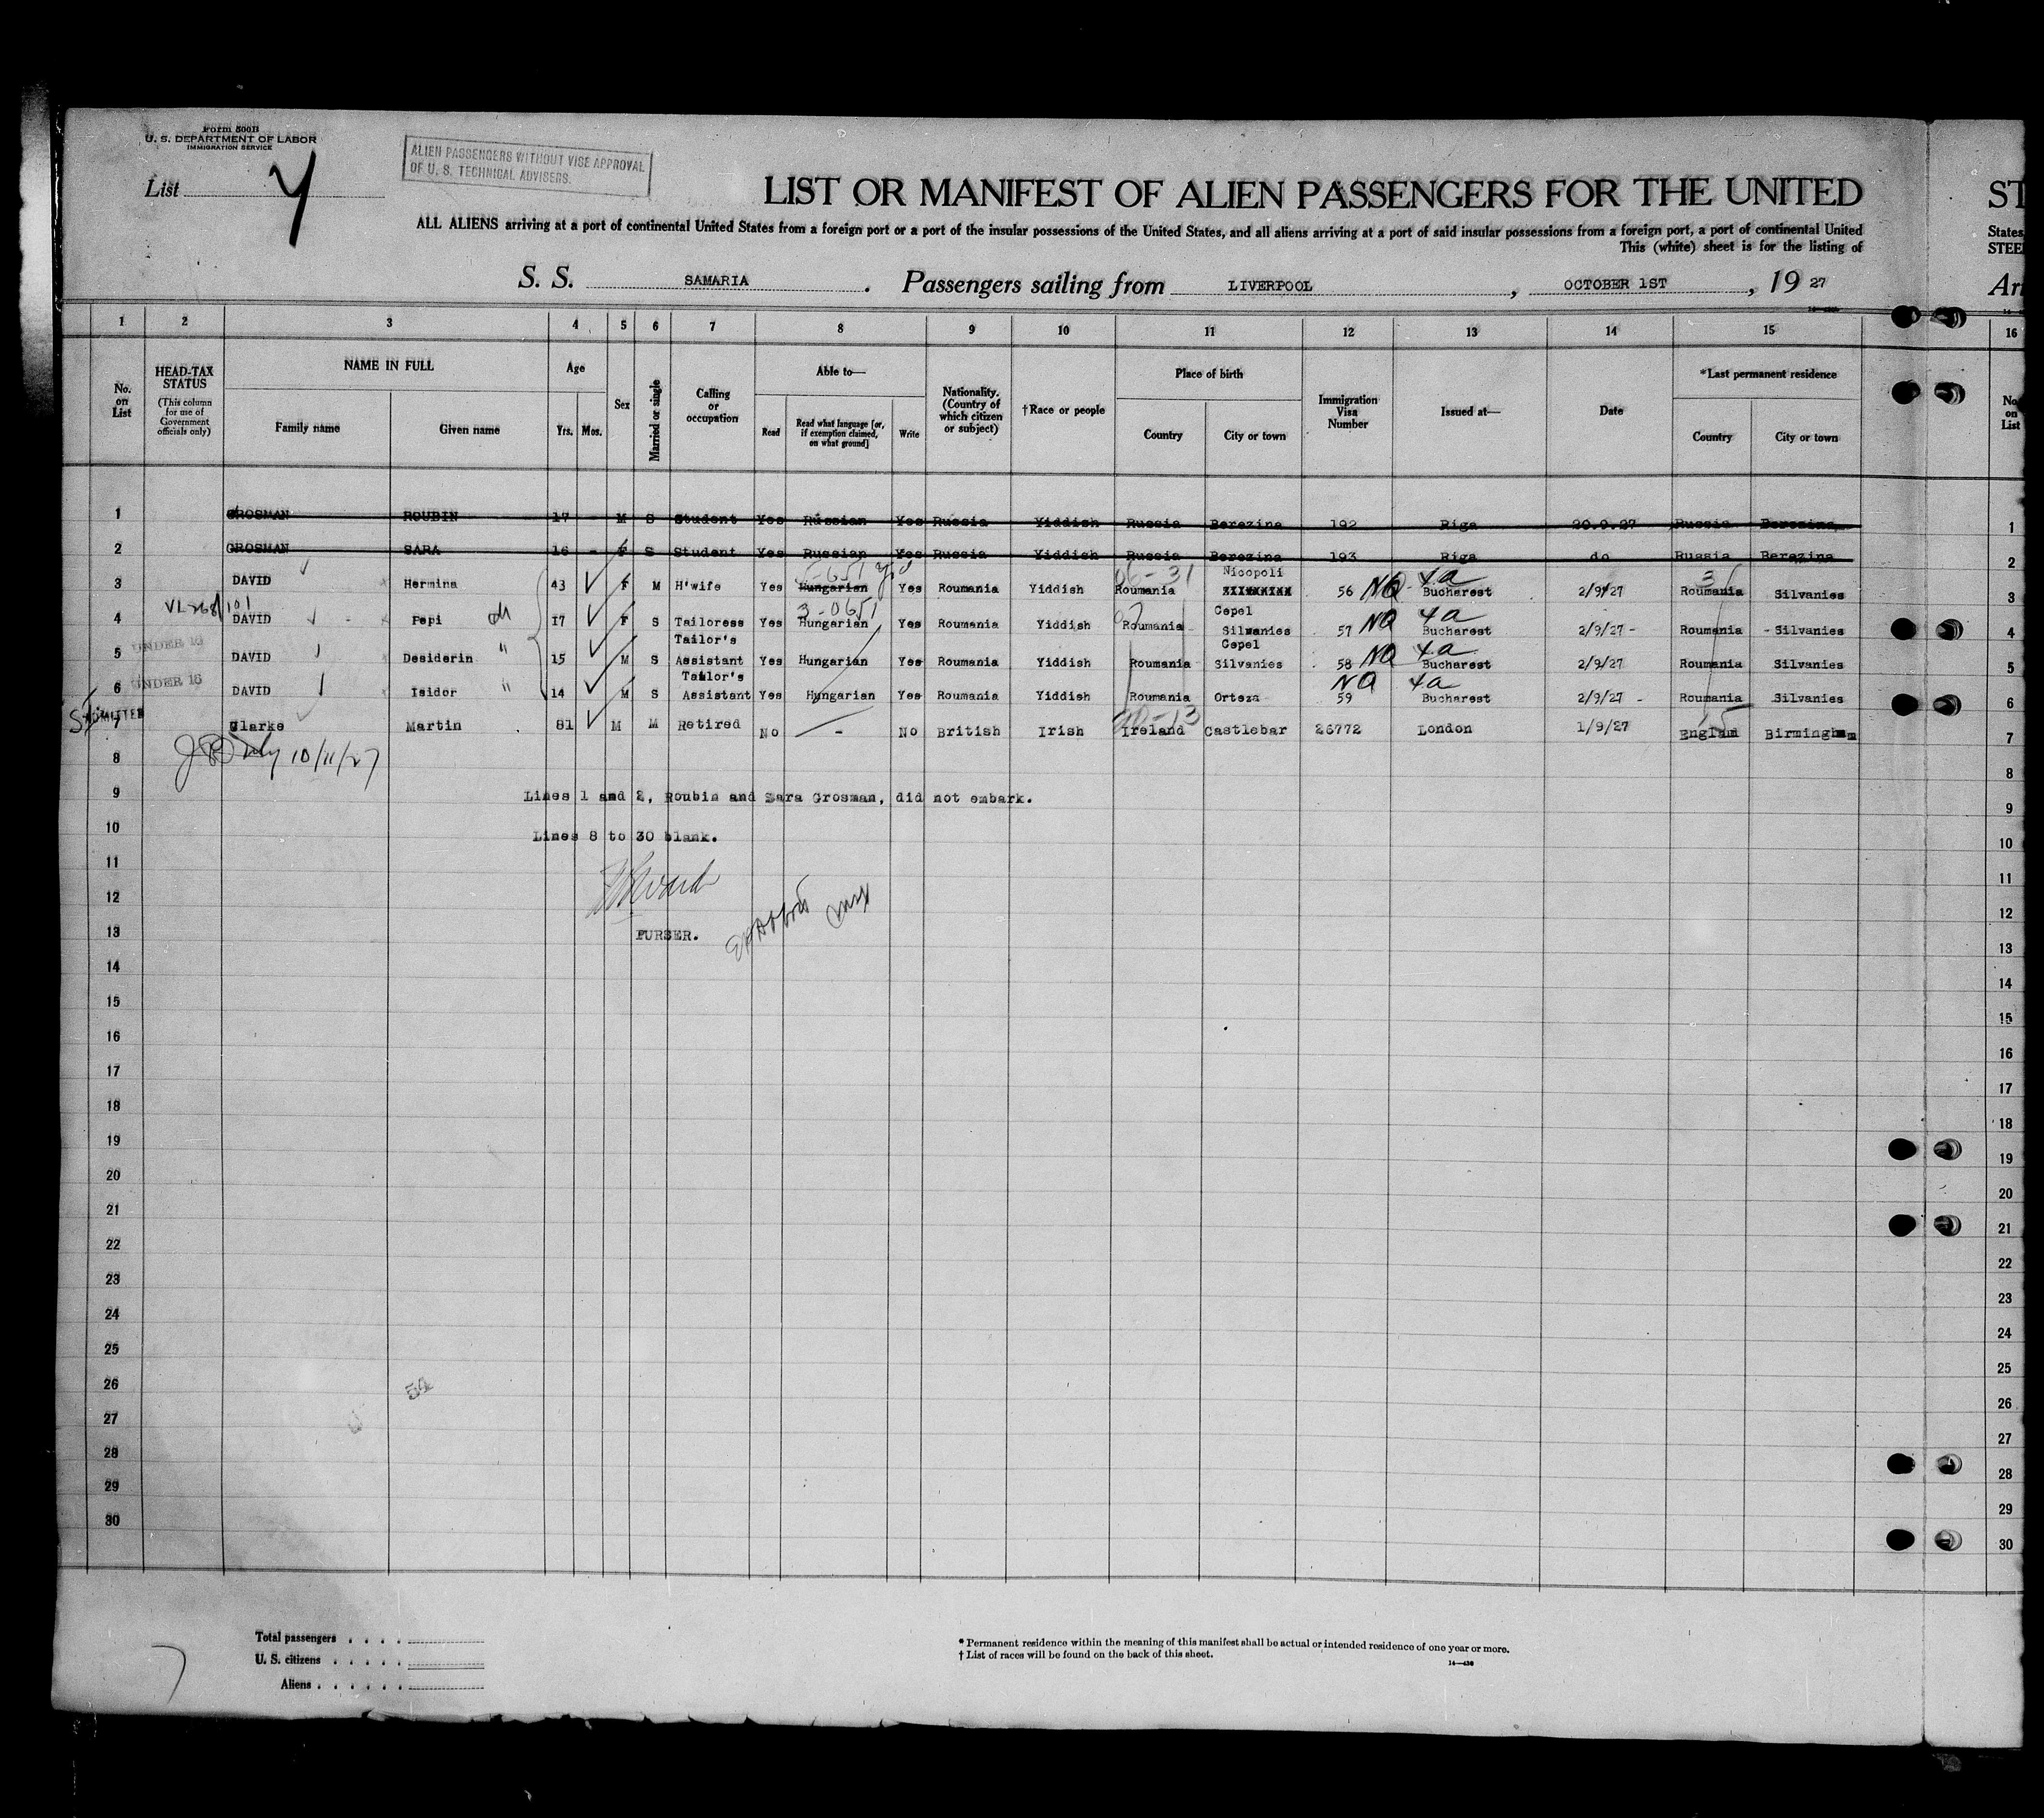 Form 500B
U. S. DEPARTMENT OF LABOR
IMMIGRATION SERVICE
ALIEN PASSENGERS WITHOUT VISE APPROVAL
OF U. S. TECHNICAL ADVISERS.
List
LIST OR MANIFEST OF ALIEN PASSENGERS FOR THE UNITED ST
ALL ALIENS arriving at a port of continental United States from a foreign port or a port of the insular possessions of the United States, and all aliens arriving at a port of said insular possessions from a foreign port, a port of continental United States
This (white) sheet is for the listing of STEE
S. S. SAMARIA. Passengers sailing from LIVERPOOL, OCTOBER 1ST, 19 27 Arr
1 2 3 4 5 6 7 8 9 10 11 12 13 14 15 16
No. on List
HEAD-TAX STATUS
(This column for use of Government officials only)
NAME IN FULL
Family name Given name
Age
Yrs. Mos.
Sex
Married or single
Calling or occupation
Able to—
Read
Read what language [or, if exemption claimed, on what ground]
Write
Nationality. (Country of which citizen or subject)
†Race or people
Place of birth
Country City or town
Immigration Visa Number
Issued at—
Date
*Last permanent residence
Country City or town
No. on List
1 GROSMAN ROUBIN 17 - M S Student Yes Russian Yes Russia Yiddish Russia Berezina 192 Riga 20.9.27 Russia Berezina 1
2 GROSMAN SARA 16 - F S Student Yes Russian Yes Russia Yiddish Russia Berezina 193 Riga do Russia Berezina 2
Nicopoli
3 DAVID Hermina 43 F M H'wife Yes Hungarian Yes Roumania Yiddish Roumania 56 NQ 4a Bucharest 2/9/27 Roumania Silvanies 3
VL 268/101
3-0651
Cepel
4 DAVID Pepi 17 F S Tailoress Yes Hungarian Yes Roumania Yiddish Roumania Silvanies 57 NQ 4a Bucharest 2/9/27 - Roumania - Silvanies 4
UNDER 16
Tailor's Cepel
5 DAVID Desiderin " 15 M S Assistant Yes Hungarian Yes Roumania Yiddish Roumania Silvanies 58 NQ 4a Bucharest 2/9/27 Roumania Silvanies 5
UNDER 16
Tailor's
6 DAVID Isidor " 14 M S Assistant Yes Hungarian Yes Roumania Yiddish Roumania Orteza 59 NQ 4a Bucharest 2/9/27 - Roumania Silvanies 6
ADMITTED
7 Clarke Martin 81 M M Retired No - No British Irish Ireland Castlebar 26772 London 1/9/27 England Birmingham 7
10/11/27
8 8
9 Lines 1 and 2, Roubin and Sara Grosman, did not embark. 9
10 Lines 8 to 30 blank. 10
11 11
12 12
13 PURSER. 13
14 14
15 15
16 16
17 17
18 18
19 19
20 20
21 21
22 22
23 23
24 24
25 25
26 54 26
27 27
28 28
29 29
30 30
Total passengers
U. S. citizens
Aliens
* Permanent residence within the meaning of this manifest shall be actual or intended residence of one year or more.
† List of races will be found on the back of this sheet.
14—430